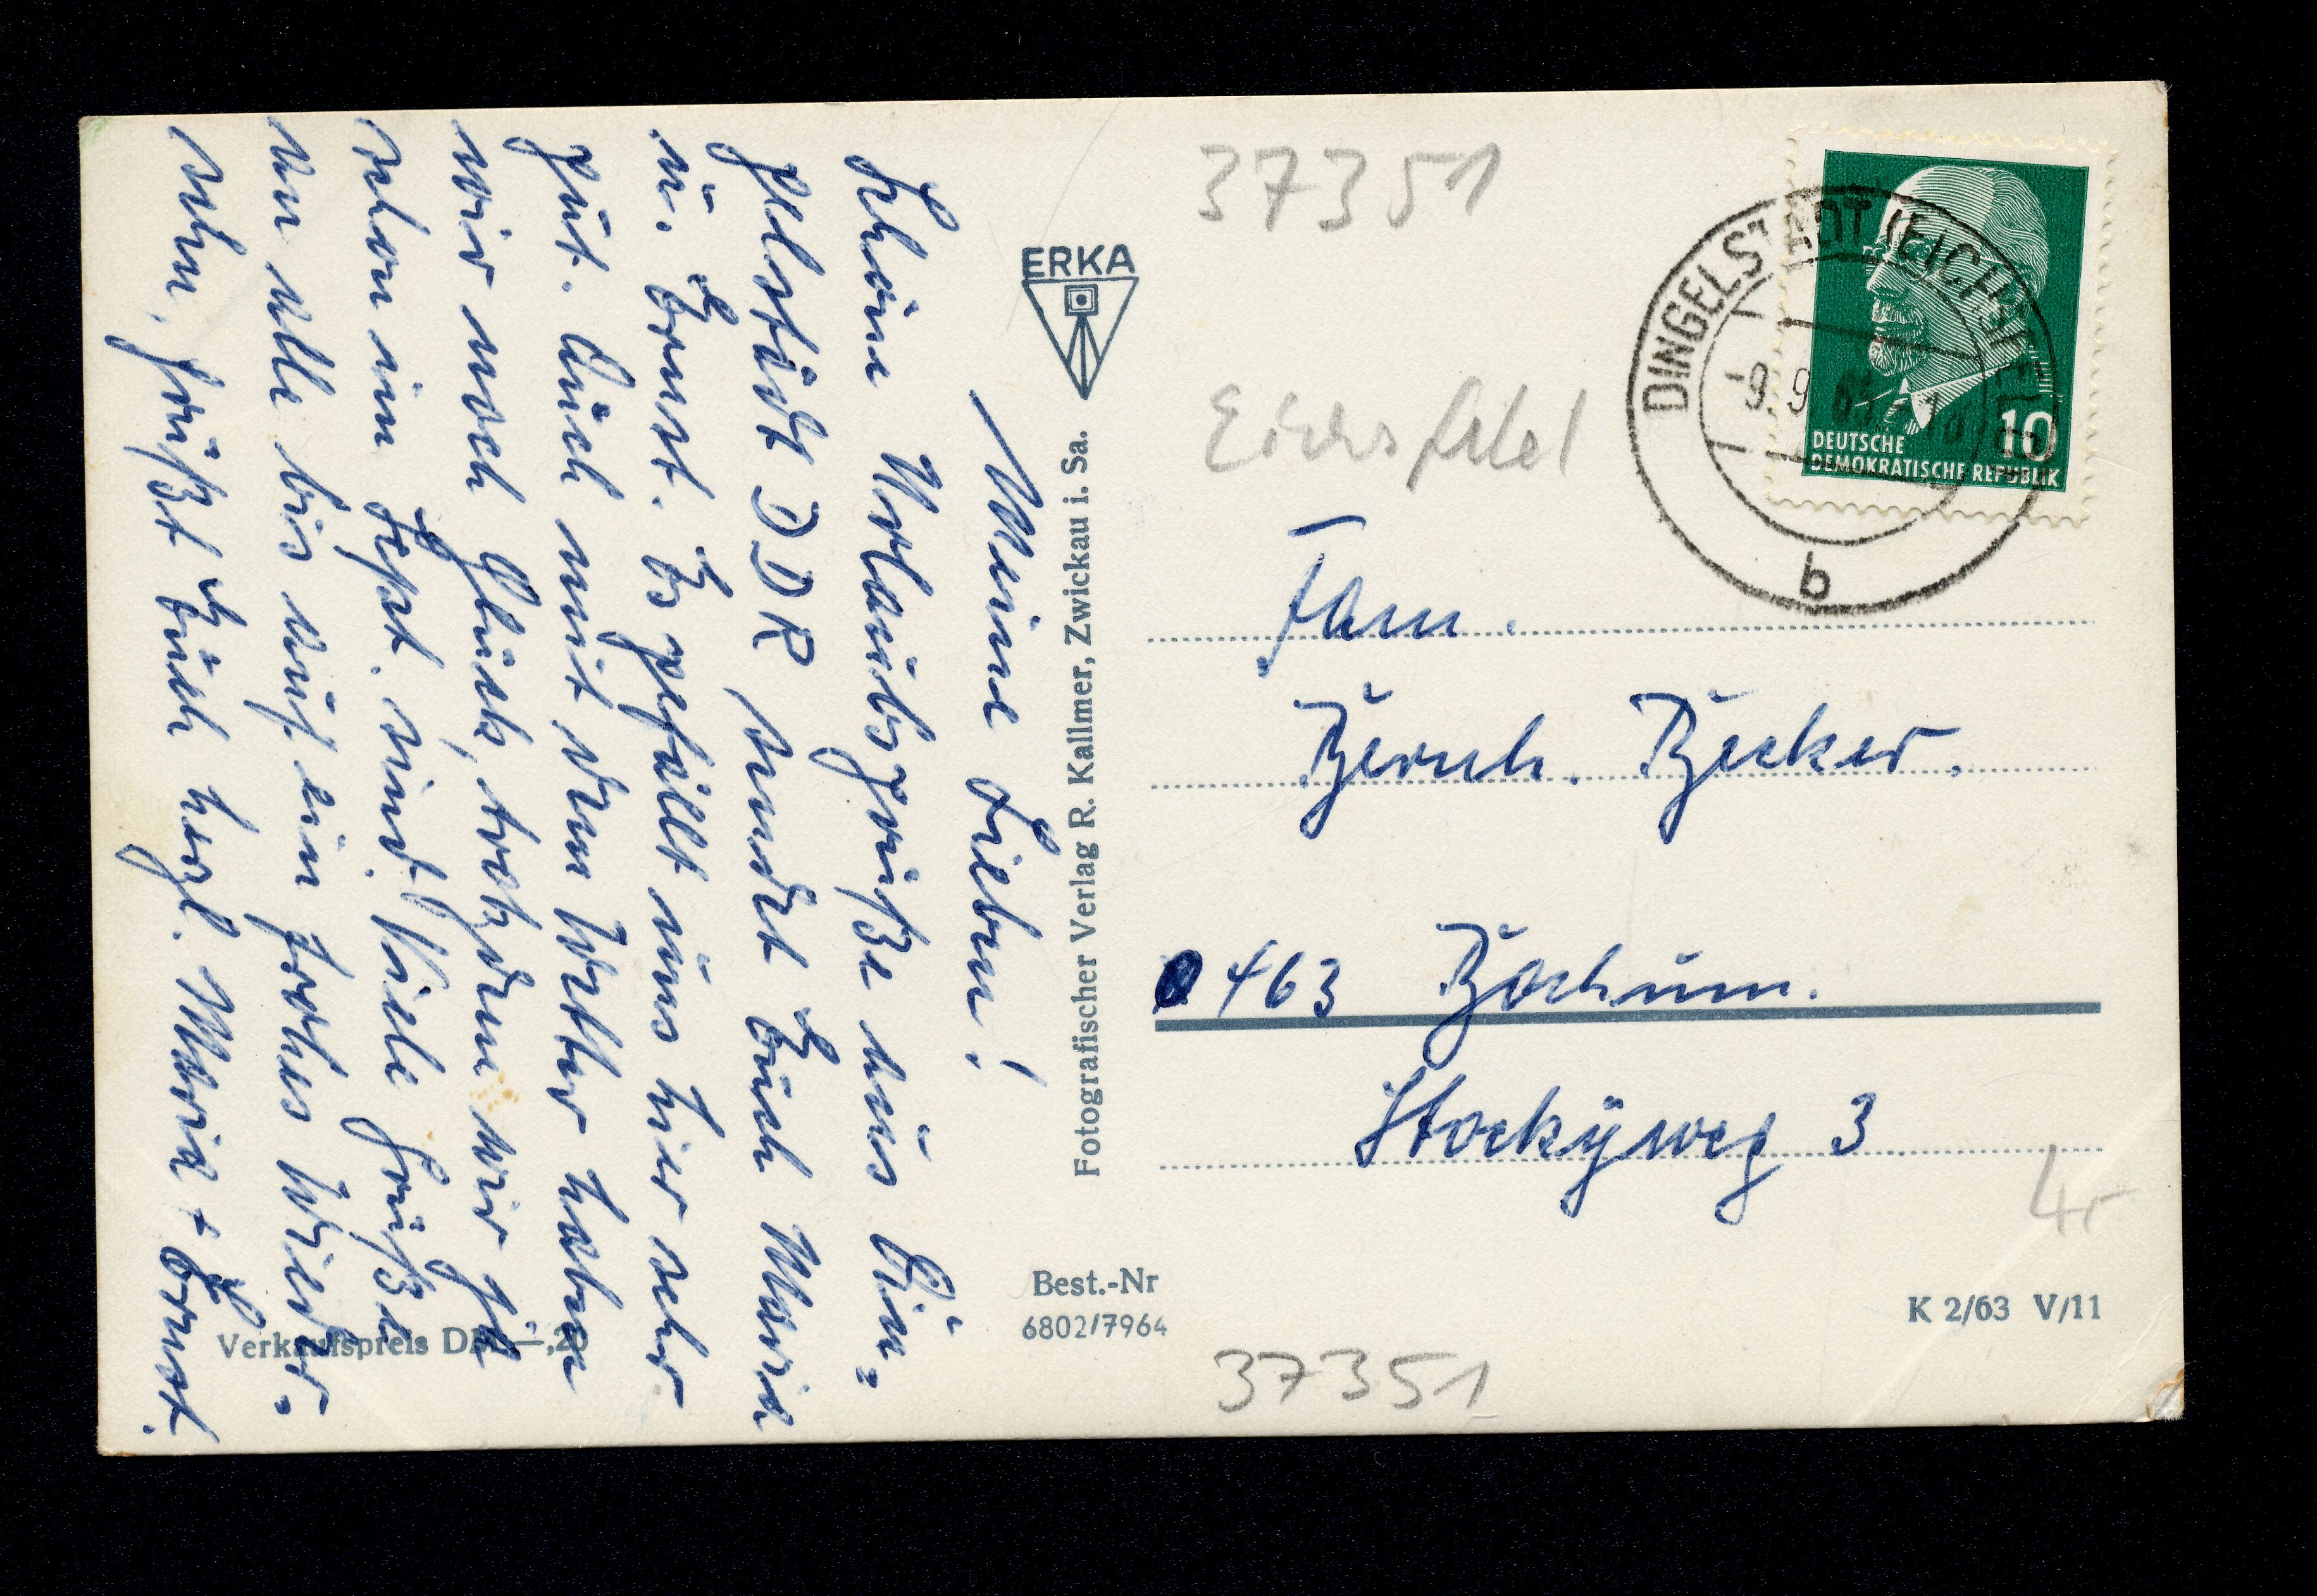 Meine Lieben!
Schöne Urlaubsgrüße aus Din-
gelstädt DDR sendet Euch Maria
u. Ernst. Es gefällt uns hier sehr
gut. Auch mit dem Wetter haben
wir noch Glück, trotzdem wir ja
schon im Sept. sind. Viele Grüße
an alle bis auf ein frohes Wieder-
sehn, grüßt Euch herzl. Maria + Ernst.
Verkaufspreis DM —,20
ERKA
Fotografischer Verlag R. Kallmer, Zwickau i. Sa.
Best.-Nr
6802/7964
37351
Eichsfeld
DINGELSTÄDT (EICHSFELD)
-9.9.65-18
b
10
DEUTSCHE
DEMOKRATISCHE REPUBLIK
Fam.
Bernh. Becker.
463 Bochum.
Stockyweg 3
K 2/63 V/11
37351